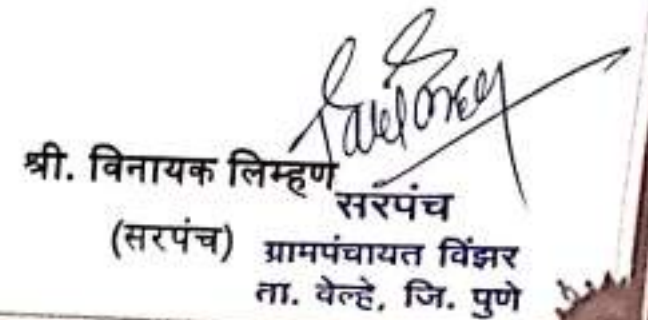 श्री. विनायक लिम्हण
(सरपंच)
सरपंच
ग्रामपंचायत विंझर
ता. वेल्हे, जि. पुणे